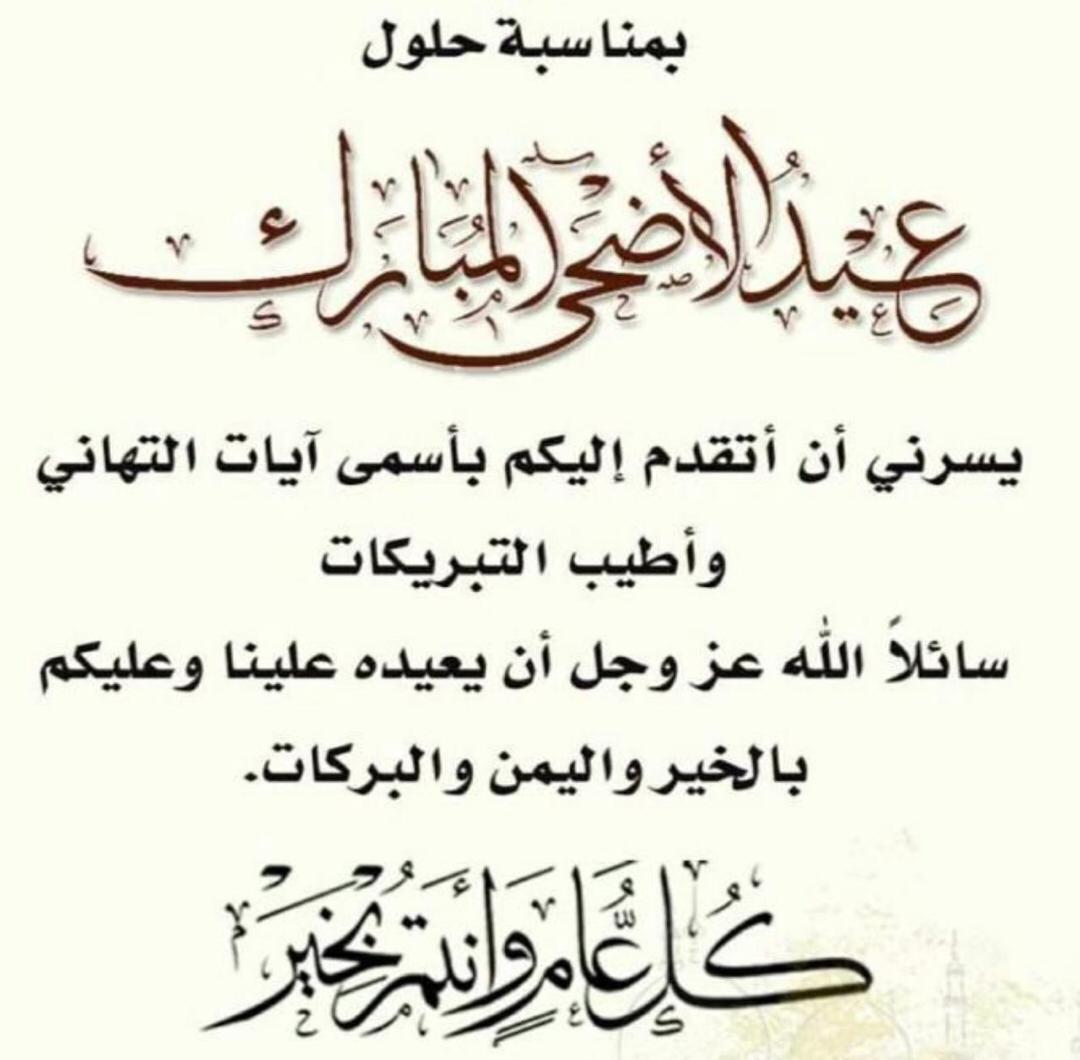 بمناسبة حلول
عيد الأضحى المبارك
يسرني أن أتقدم إليكم بأسمى آيات التهاني
وأطيب التبريكات
سائلاً الله عز وجل أن يعيده علينا وعليكم
بالخير واليمن والبركات.
كُل عَام وَأَنتُم بِخَير